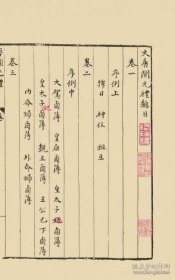 大唐開元禮總目
卷一
序例上
擇日 神位 俎豆
卷二
序例中
大駕鹵簿 皇后鹵簿 皇太子鹵簿
皇太子妃鹵簿 親王鹵簿 王公已下鹵簿
內命婦鹵簿 外命婦鹵簿
卷三